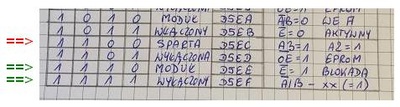 1 0 1 0 MODUŁ D5EA A̅/B=0 WE A
1 0 1 1 WŁĄCZONY D5EB E̅=0 AKTYWNY
==> 1 1 0 0 SPARTA D5EC A3=1 A2=1
1 1 0 1 WYŁĄCZONA D5ED OE=1 EPROM
==> 1 1 1 0 MODUŁ D5EE E̅=1 BLOKADA
==> 1 1 1 1 WYŁĄCZONY D5EF A/B - xx (=1)